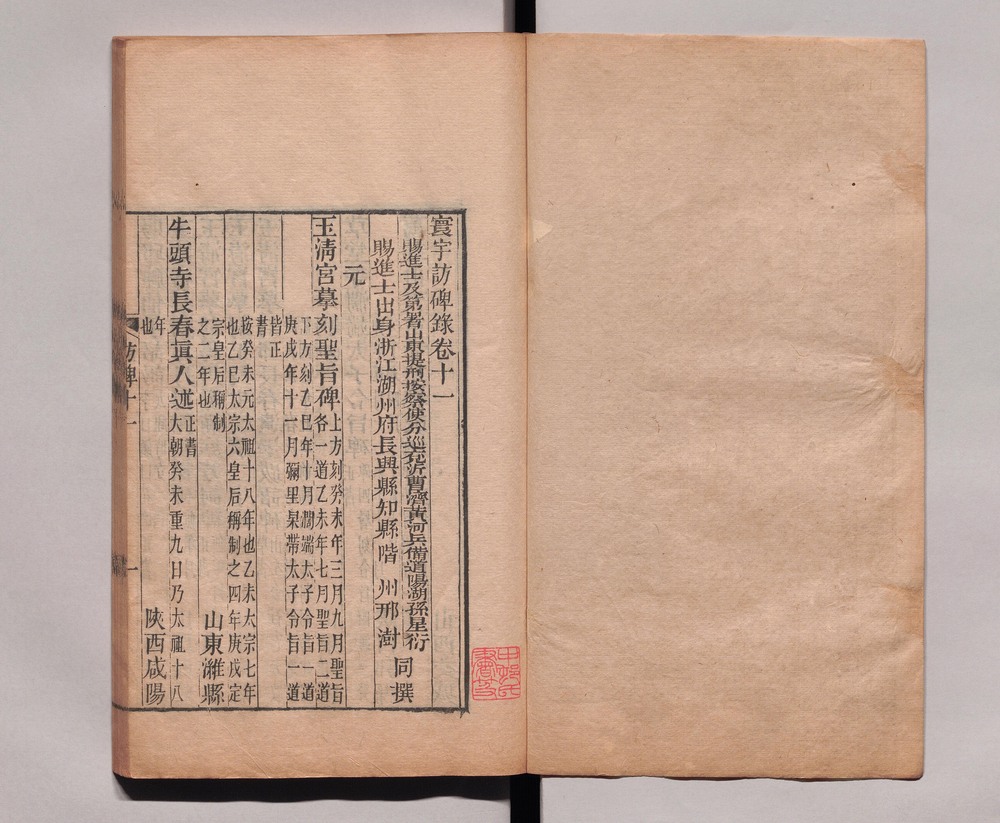 寰宇訪碑錄卷十一
賜進士及第署山東提刑按察使分巡兖沂曹濟黃河兵備道陽湖孫星衍
賜進士出身浙江湖州府長興縣知縣階州邢澍
同撰
元
玉淸宮摹刻聖旨碑
上方刻癸未年三月九月聖旨
各一道乙未年七月聖旨二道
下方刻乙巳年十月濶端太子令旨一道
庚戌年十一月彌里杲帶太子令旨一道
皆正
書
按癸未元太祖十八年也乙未太宗七年
也乙巳太宗六皇后稱制之四年庚戌定
宗皇后稱制
之二年也
山東濰縣
牛頭寺長春眞人述
正書
大朝癸未重九日乃太祖十八
年
也
陝西咸陽
訪碑十一
一